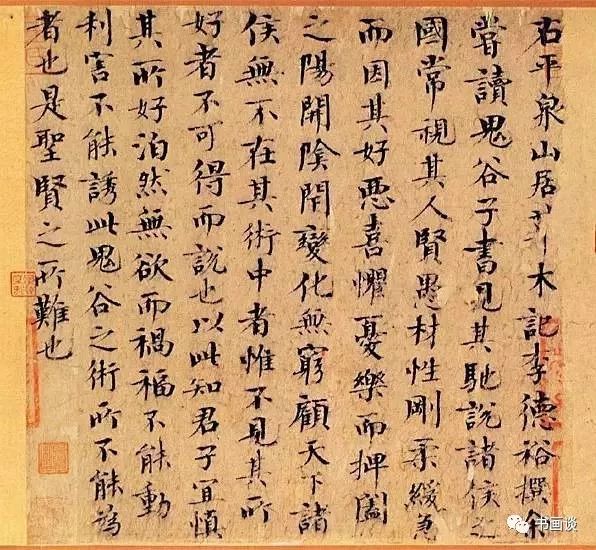 右平泉山居草木記李德裕撰余
嘗讀鬼谷子書見其馳說諸侯之
國常視其人賢愚材性剛柔緩急
而因其好惡喜懼憂樂而捭闔
之陽開陰閇變化無窮顧天下諸
侯無不在其術中者惟不見其所
好者不可得而說也以此知君子宜慎
其所好泊然無欲而禍福不能動
利害不能誘此鬼谷之術所不能為
者也是聖賢之所難也
书画谈